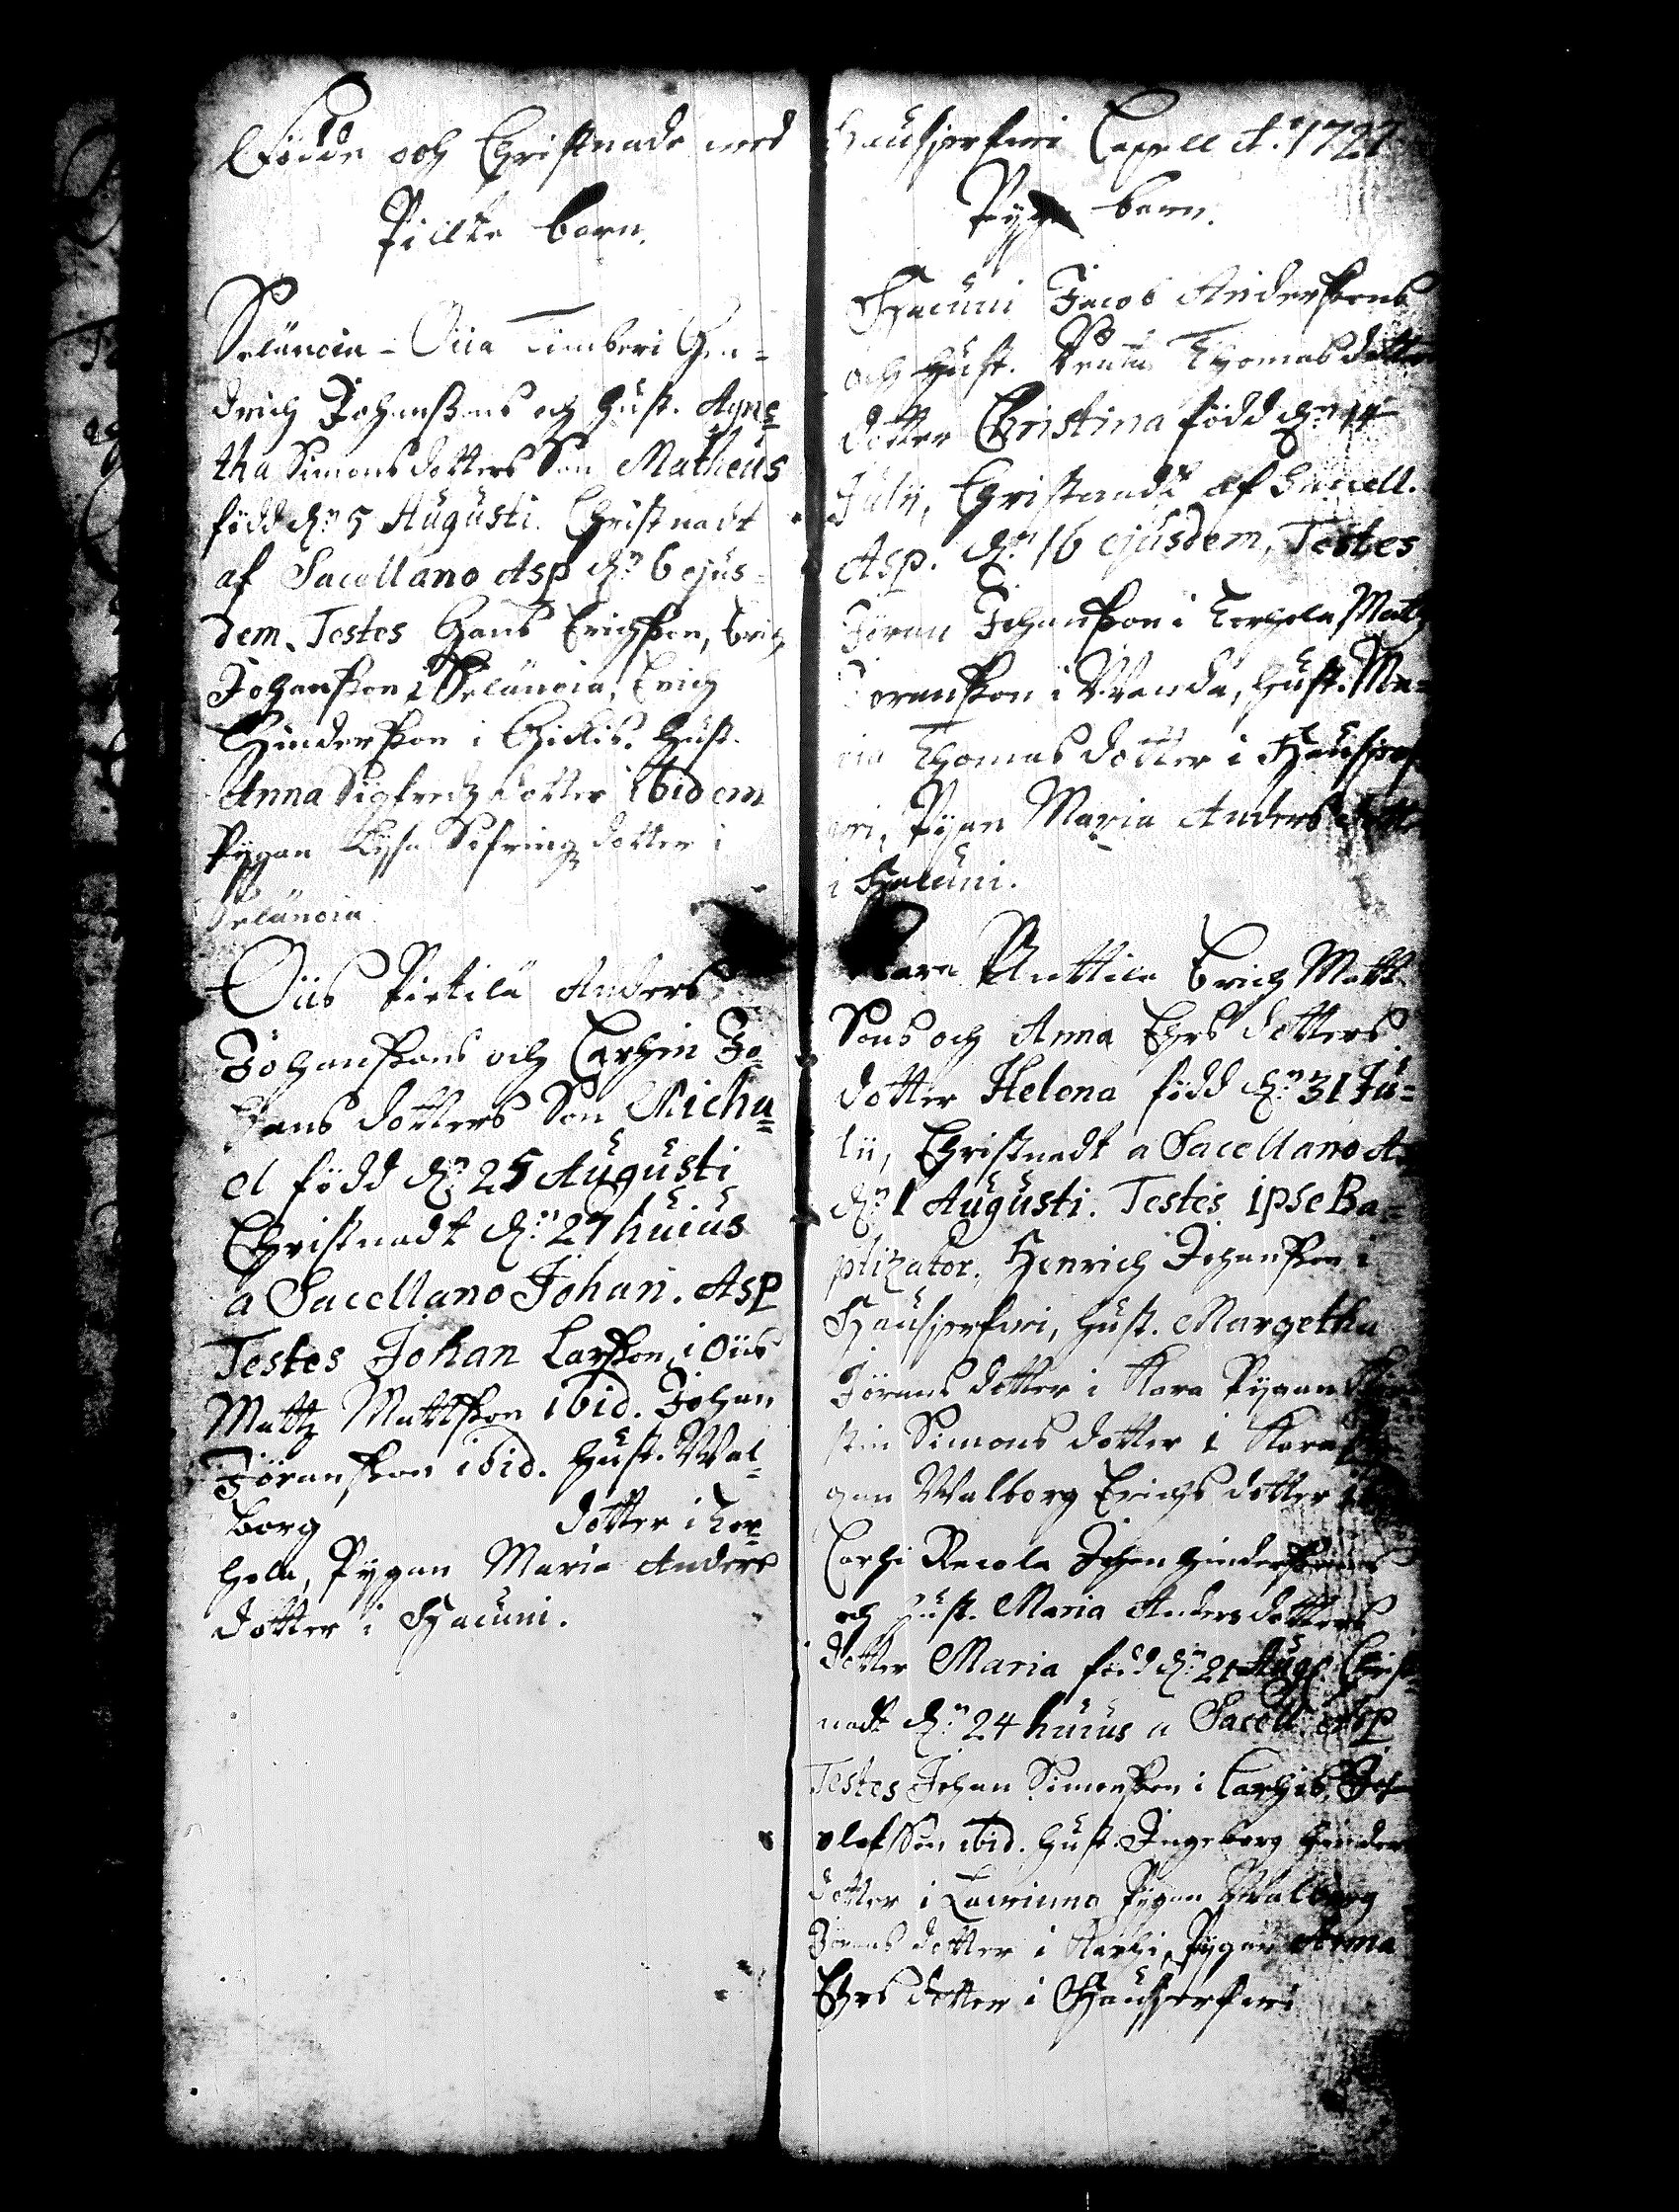 Födde och Christnade wed
Piltte barn.
Selänoia - Oiia Timberi Hen-
drich Johanssons och hust. Agne-
tha Simonsdotters Son Matheus
född d:n 5 Augusti. Christnadt
af Sacellano Asp d:n 6 ejus-
dem. Testes Hans Erichsson, Erich
Johansson i Selänoia, Erich
Hindersson i Hickis. Hust.
Anna Sigfredz dotter ibidem
Pygan Lysa Sifredz dotter i
Selänoia
Oiis Pietilä Anders
Johanssons och Carhin Jo-
hans dotters Son Micha-
el född d:n 25 Augusti
Christnadt d:n 27 huius
a Sacellano Johan. Asp
Testes Johan Larsson i Oiis
Mattz Mattsson ibid. Johan
Jöransson ibid. hust. Wal-
borg dotter i Ter-
hola, Pygan Maria Anders
dotter i Hacuni.
Hausjerfwi Capell A:o 1727
Pyge barn.
Hacuni Jacob Anderssons
och hust. Thomasdotters
dotter Christina född d:n 14
July, Christnadt af Sacell.
Asp. d:n 16 ejusdem, Testes
Jöran Johansson i Terhola Mattz
Jöransson i Wanda, hust. Ma-
ria Thomas dotter i Hausjer
fwi, Pygan Maria Anders dotter
i Hacuni.
Kara Anttila Erich Matt
Sons och Anna Ehrs dotters
dotter Helena född d:n 31 Ju-
lii, Christnadt a Sacellano A.
d:n 1 Augusti. Testes ipse Ba-
ptizator, Henrich Johansson i
Hausjerfwi, hust. Margetha
Jörans dotter i Kara Pygan
stin Simons dotter i Kara
gan Walborg Erichs dotter
Carhi Recola Johan Hinderssons
och hust. Maria Anders dotters
dotter Maria född d:n 21 Aug. Christ-
nadt d:n 24 huius a Sacell. Asp
Testes Johan Simonsson i Carhis, Joh
olofsSon ibid. hust. Ingeborg Hinders
dotter i Pygan Walborg
Jörans dotter i Karhi, Pygan Anna
Ehrs dotter i Hausjerfwi